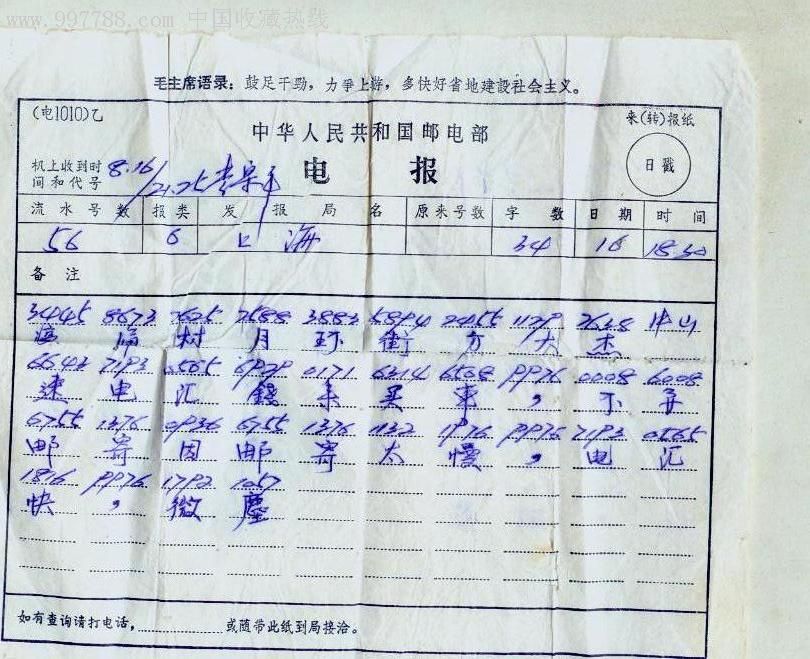 www.997788.com 中国收藏热线
毛主席语录：鼓足干劲，力争上游，多快好省地建設社会主义。
(电1010)乙
中华人民共和国邮电部
来(转)报纸
电 报
日戳
机上收到时
间和代号
8.16
21.25
流水号数 报类 发报局名 原来号数 字数 日期 时间
56 6 上海 34 16 18.30
备注
3445 8673 2625 2588 3883 5894 2455 1129 2638 中山
村 月 环 街 方 大 杰
6643 7193 0565 6929 0171 6314 6508 9976 0008 6008
速 电 汇 錢 来 买 车 , 不 弄
6755 1376 0936 6755 1376 1132 1976 9976 7193 0565
邮 寄 因 邮 寄 太 慢 , 电 汇
1816 9976 1792 1057
快 , 微 塵
如有查询请打电话，
或随带此纸到局接洽。